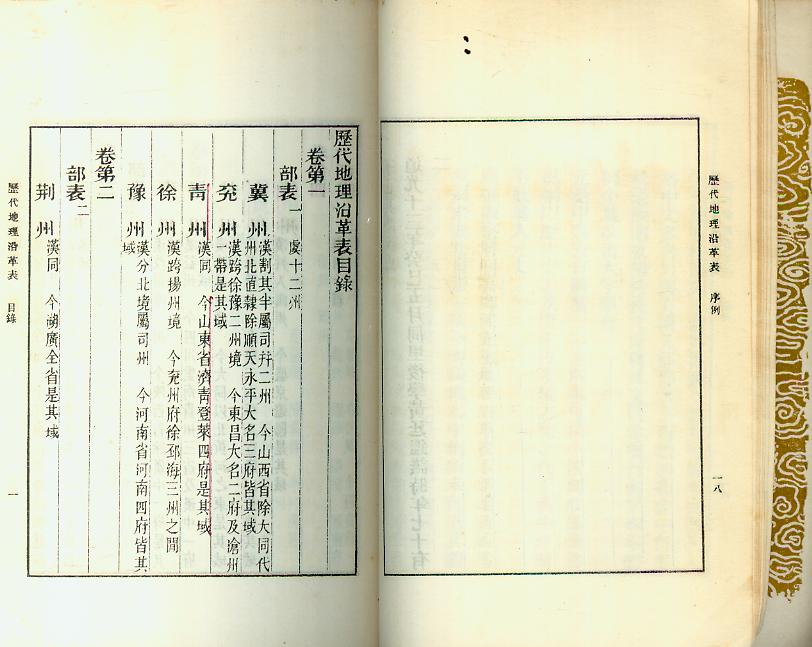 歷代地理沿革表 序例
一八
歷代地理沿革表目錄
卷第一
部表一 虞十二州
冀州 漢割其半屬司幷二州 今山西省除大同代
州北直隸除順天永平大名三府皆其域
兗州 漢跨徐豫二州境 今東昌大名二府及滄州
一帶是其域
靑州 漢同 今山東省濟靑登萊四府是其域
徐州 漢跨揚州境 今兗州府徐邳海三州之間
豫州 漢分北境屬司州 今河南省河南四府皆其
域
卷第二
部表二
荆州 漢同 今湖廣全省是其域
歷代地理沿革表 目錄
一